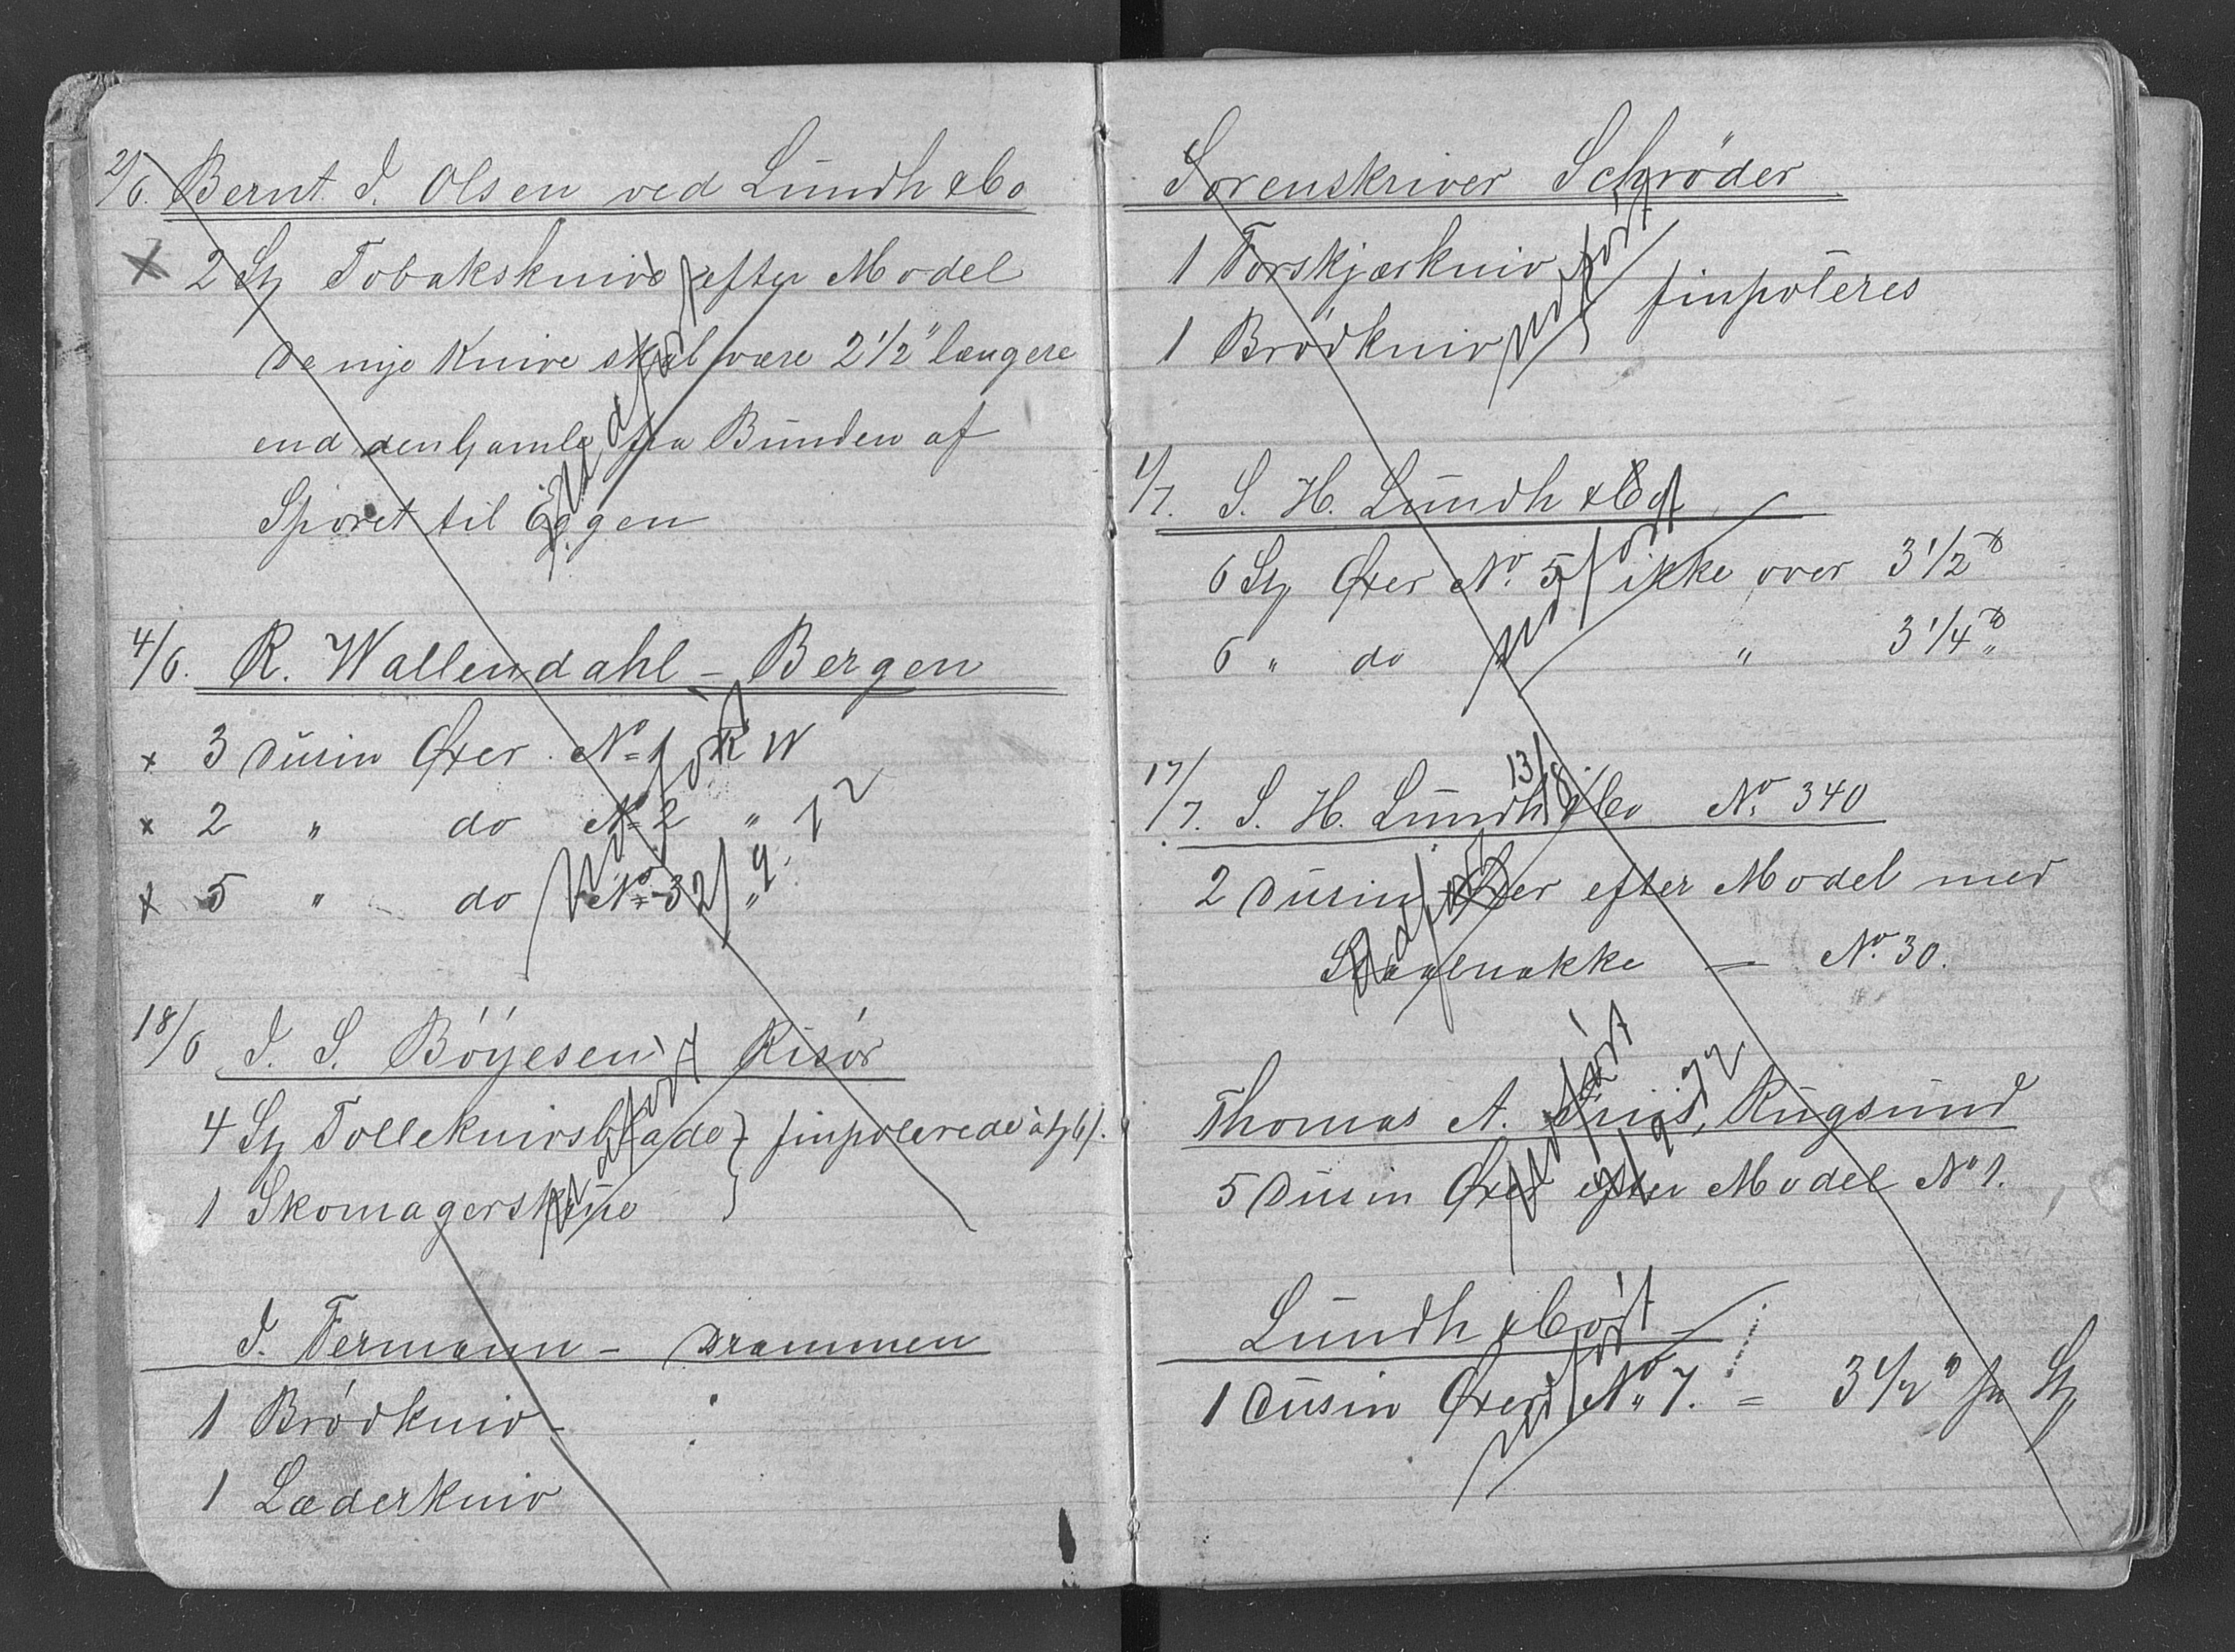 2/6. Bernt J. Olsen ved Lundh & Co
x 2 St Tobaksknive efter Model
De nye Knive skal være 2 1/2" længere
end den Gamle fra Bunden af
Sporet til Eggen
udført
4/6. R. Wallendahl - Bergen
x 3 Dusin Øxer No 1 RW
x 2 " do No 2 "
x 5 " do No 3 "
udført
18/6 J. S. Böyesen - Risör
4 St Tolleknivsblade } finpolerede
1 Skomagerskive }
udført
J. Fermann - Drammen
1 Brödkniv -
1 Læderkniv
Sorenskriver Schröder
1 Forskjærkniv } finpoleres
1 Brödkniv }
udført
1/7. S. H. Lundh & Co
6 St Øxer No. 5 ikke over 3 1/2 ℔
6 " do " 3 1/4 "
udført
17/7. S. H. Lundh & Co No. 340
13/8
2 Dusin Øxer efter Model med
Staalnakke - No. 30.
udført
Thomas A. Friis, Rugsund
5 Dusin Øxer efter Model No 1.
udført
Lundh & Co
1 Dusin Øxer No 7. = 3 1/2 ℔ pr St
udført